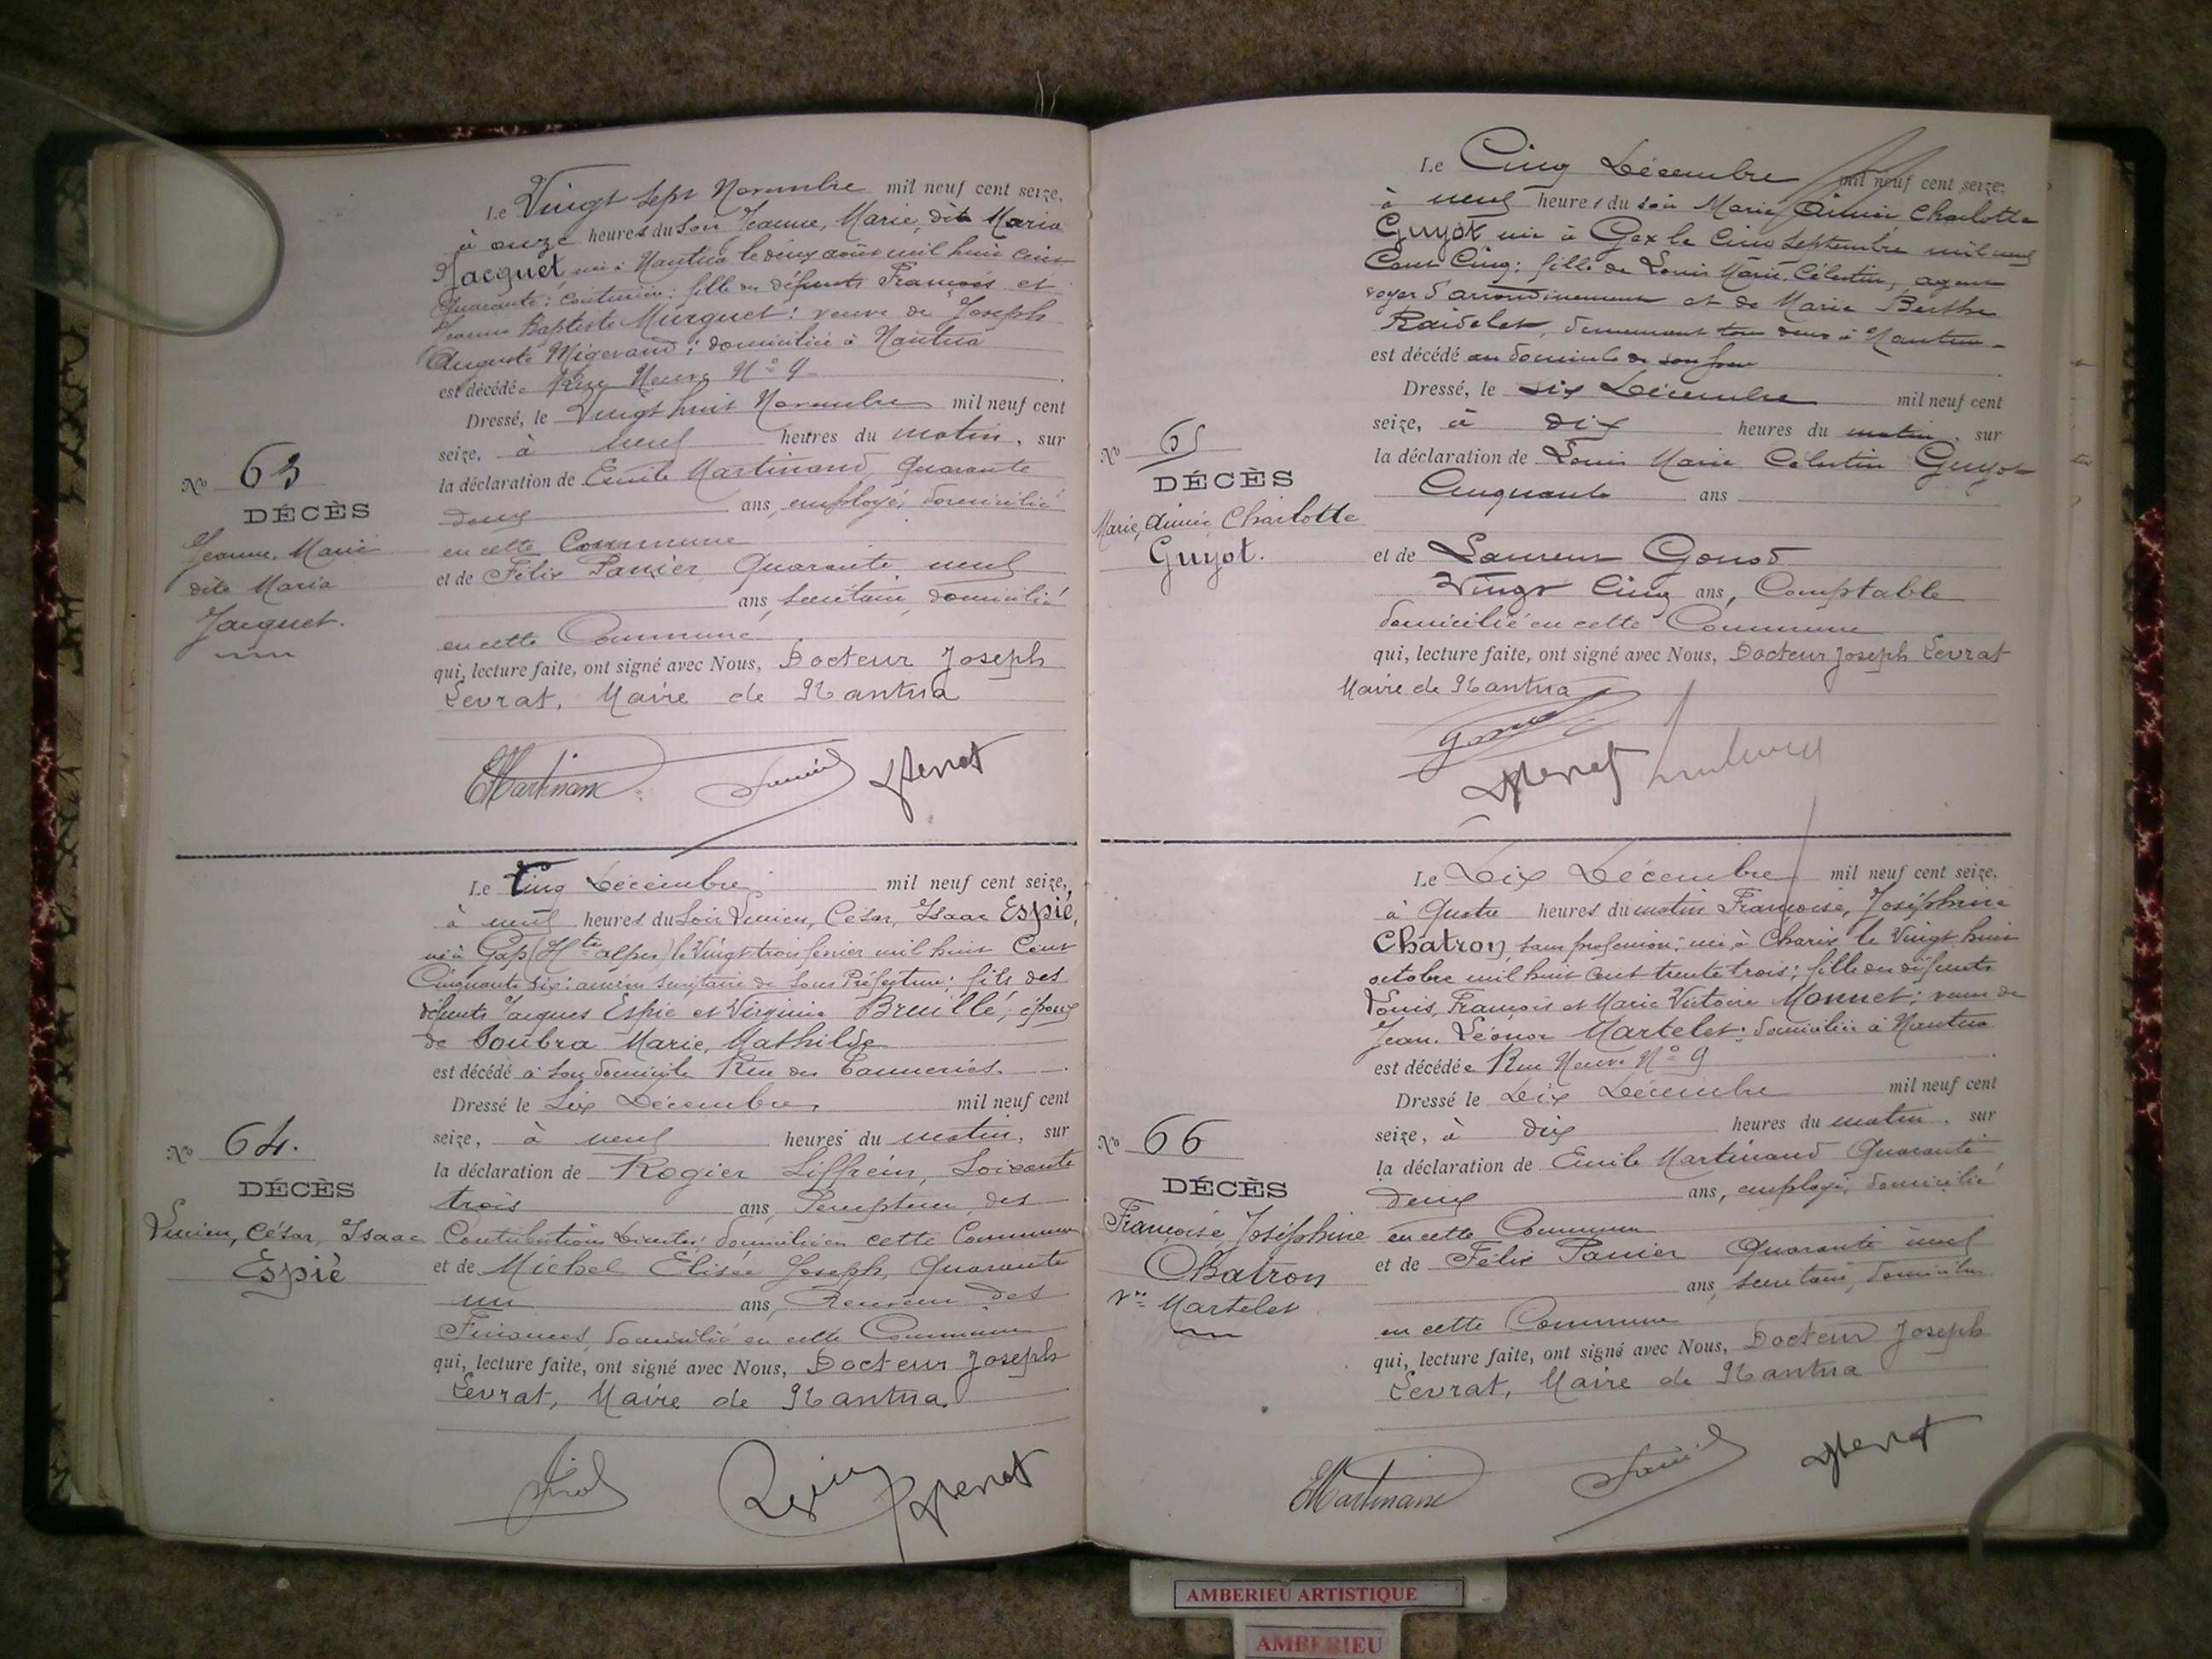 Le Vingt sept Novembre mil neuf cent seize,
à onze heures du soir Jeanne, Marie, dite Maria
Jacquet, née à Nantua le deux août mil huit cent
quarante; couturière; fille des défunts François et
Jeanne Baptiste Murguet; veuve de Joseph
Auguste Migerand; domiciliée à Nantua
est décédée Rue Neuve N° 9
Dressé, le Vingt huit Novembre mil neuf cent
seize, à neuf heures du matin, sur
la déclaration de Emile Martinand, Quarante
deux ans, employé, domicilié
en cette Commune
et de Félix Panier Quarante neuf
ans, secrétaire, domicilié
en cette Commune
qui, lecture faite, ont signé avec Nous, Docteur Joseph
Levrat, Maire de Nantua
N° 63
DÉCÈS
Jeanne, Marie
dite Maria
Jacquet.
EMartinand Panier JLevrat
Le Cinq Décembre mil neuf cent seize,
à neuf heures du soir Lucien, César, Isaac Espié,
né à Gap (Htes alpes) le Vingt trois février mil huit Cent
Cinquante six; ancien secrétaire de Sous Préfecture; fils des
défunts Jacques Espié et Virginie Breuillé; époux
de Soubra Marie, Mathilde
est décédé à son domicile Rue des Tanneries.
Dressé le Six Décembre mil neuf cent
seize, à neuf heures du matin, sur
la déclaration de Rogier Liffrein, Soixante
trois ans, Percepteur des
Contributions Directes; domicilié en cette Commune
et de Michel Elisée Joseph, Quarante
un ans, Receveur des
Finances, domicilié en cette Commune
qui, lecture faite, ont signé avec Nous, Docteur Joseph
Levrat, Maire de Nantua.
N° 64.
DÉCÈS
Lucien, César, Isaac
Espié
JLevrat
Le Cinq Décembre mil neuf cent seize;
à neuf heures du soir Marie Aimée Charlotte
Guyot née à Gex le Cinq Septembre mil neuf
Cent Cinq; fille de Louis Marie Célestin, agent
voyer d'arrondissement et de Marie Berthe
Raidelet, demeurant tous deux à Nantua
est décédé au domicile de son père
Dressé, le six Décembre mil neuf cent
seize, à dix heures du matin, sur
la déclaration de Louis Marie Célestin Guyot
Cinquante ans
et de Laurent Gonod
Vingt Cinq ans, Comptable
domicilié en cette Commune
qui, lecture faite, ont signé avec Nous, Docteur Joseph Levrat
Maire de Nantua
N° 65
DÉCÈS
Marie, Aimée, Charlotte
Guyot.
JLevrat
Le Dix Décembre mil neuf cent seize,
à Quatre heures du matin Françoise, Joséphine
Chatron, sans profession; née à Charix le Vingt huit
octobre mil huit cent trente trois; fille des défunts
Louis, François et Marie Victoire Monnet; veuve de
Jean Léonor Martelet; domiciliée à Nantua
est décédée Rue Neuve N° 9
Dressé le Dix Décembre mil neuf cent
seize, à dix heures du matin, sur
la déclaration de Emile Martinand Quarante
deux ans, employé, domicilié
en cette Commune
et de Félix Panier Quarante neuf
ans, secrétaire, domicilié
en cette Commune
qui, lecture faite, ont signé avec Nous, Docteur Joseph
Levrat, Maire de Nantua
N° 66
DÉCÈS
Françoise Joséphine
Chatron
Vve Martelet
EMartinand Panier JLevrat
AMBERIEU ARTISTIQUE
AMBERIEU